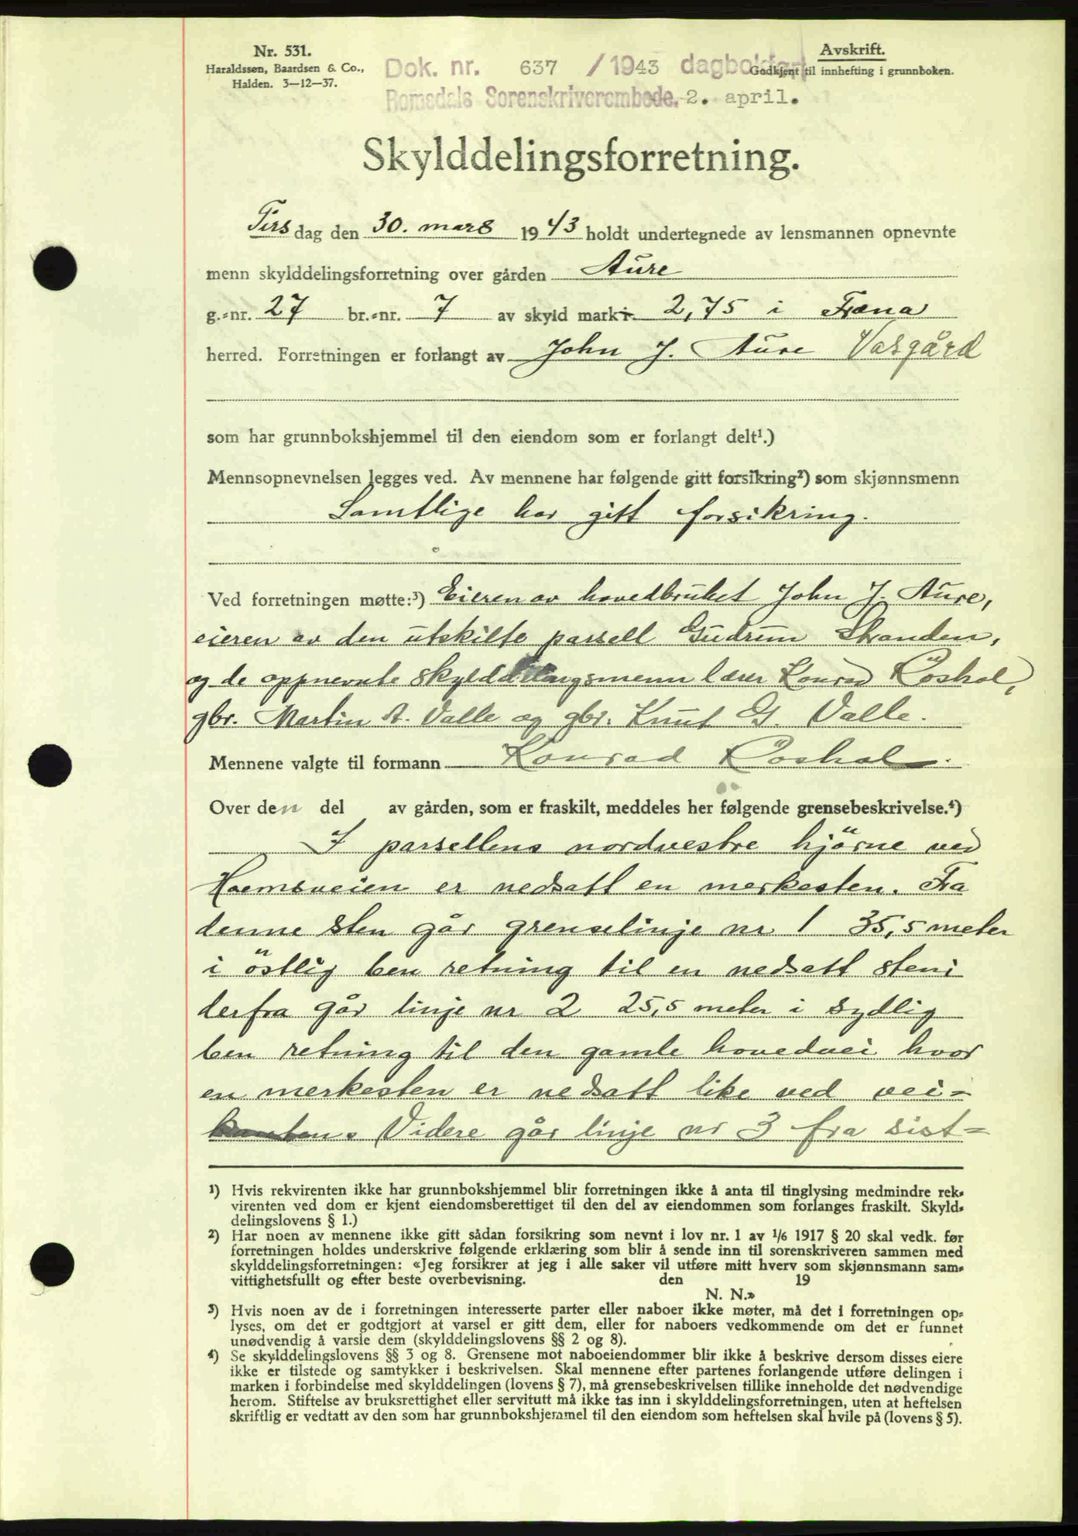 Nr. 531.
Haraldssen, Baardsen & Co.,
Halden. 3—12—37.
Dok. nr. 637 /1943 dagboken
Romsdals Sorenskriverembede. 2. april.
Avskrift.
Godkjent til innhefting i grunnboken.
Skylddelingsforretning.
Tirsdag den 30. mars 1943 holdt undertegnede av lensmannen opnevnte
menn skylddelingsforretning over gården Aure
g.-nr. 27 br.-nr. 7 av skyld mark 2,75 i Fræna
herred. Forretningen er forlangt av John J. Aure Vasgård
som har grunnbokshjemmel til den eiendom som er forlangt delt¹.)
Mennsopnevnelsen legges ved. Av mennene har følgende gitt forsikring²) som skjønnsmenn
Samtlige har gitt forsikring.
Ved forretningen møtte:³) Eieren av hovedbruket John J. Aure,
eieren av den utskilte parsell Gudrun Stranden,
og de oppnevnte skylddelingsmenn lærer Konrad Röshol,
gbr. Martin A. Valle og gbr. Knut G. Valle.
Mennene valgte til formann Konrad Röshol.
Over den del av gården, som er fraskilt, meddeles her følgende grensebeskrivelse.⁴)
I parsellens nordvestre hjörne ved
Hoemsveien er nedsatt en merkesten. Fra
denne sten går grenselinje nr 1 35,5 meter
i östlig ben retning til en nedsatt sten;
derfra går linje nr 2 25,5 meter i sydlig
ben retning til den gamle hovedvei hvor
en merkesten er nedsatt like ved vei=
kanten. Videre går linje nr 3 fra sist=
¹) Hvis rekvirenten ikke har grunnbokshjemmel blir forretningen ikke å anta til tinglysing medmindre rek-
virenten ved dom er kjent eiendomsberettiget til den del av eiendommen som forlanges fraskilt. Skyld-
delingslovens § 1.)
²) Har noen av mennene ikke gitt sådan forsikring som nevnt i lov nr. 1 av 1/6 1917 § 20 skal vedk. før
forretningen holdes underskrive følgende erklæring som blir å sende inn til sorenskriveren sammen med
skylddelingsforretningen: «Jeg forsikrer at jeg i alle saker vil utføre mitt hverv som skjønnsmann sam-
vittighetsfullt og efter beste overbevisning. den 19
N. N.»
³) Hvis noen av de i forretningen interesserte parter eller naboer ikke møter, må det i forretningen op-
lyses, om det er godtgjort at varsel er gitt dem, eller for naboers vedkommende om det er funnet
unødvendig å varsle dem (skylddelingslovens §§ 2 og 8).
⁴) Se skylddelingslovens §§ 3 og 8. Grensene mot naboeiendommer blir ikke å beskrive dersom disses eiere
ikke er tilstede og samtykker i beskrivelsen. Skal mennene efter partenes forlangende utføre delingen i
marken i forbindelse med skylddelingen (lovens § 7), må grensebeskrivelsen tillike inneholde det nødvendige
herom. Stiftelse av bruksrettighet eller servitutt må ikke tas inn i skylddelingsforretningen, uten at heftelsen
skriftlig er vedtatt av den som har grunnbokshjemmel til den eiendom som heftelsen skal hvile på (lovens § 5).